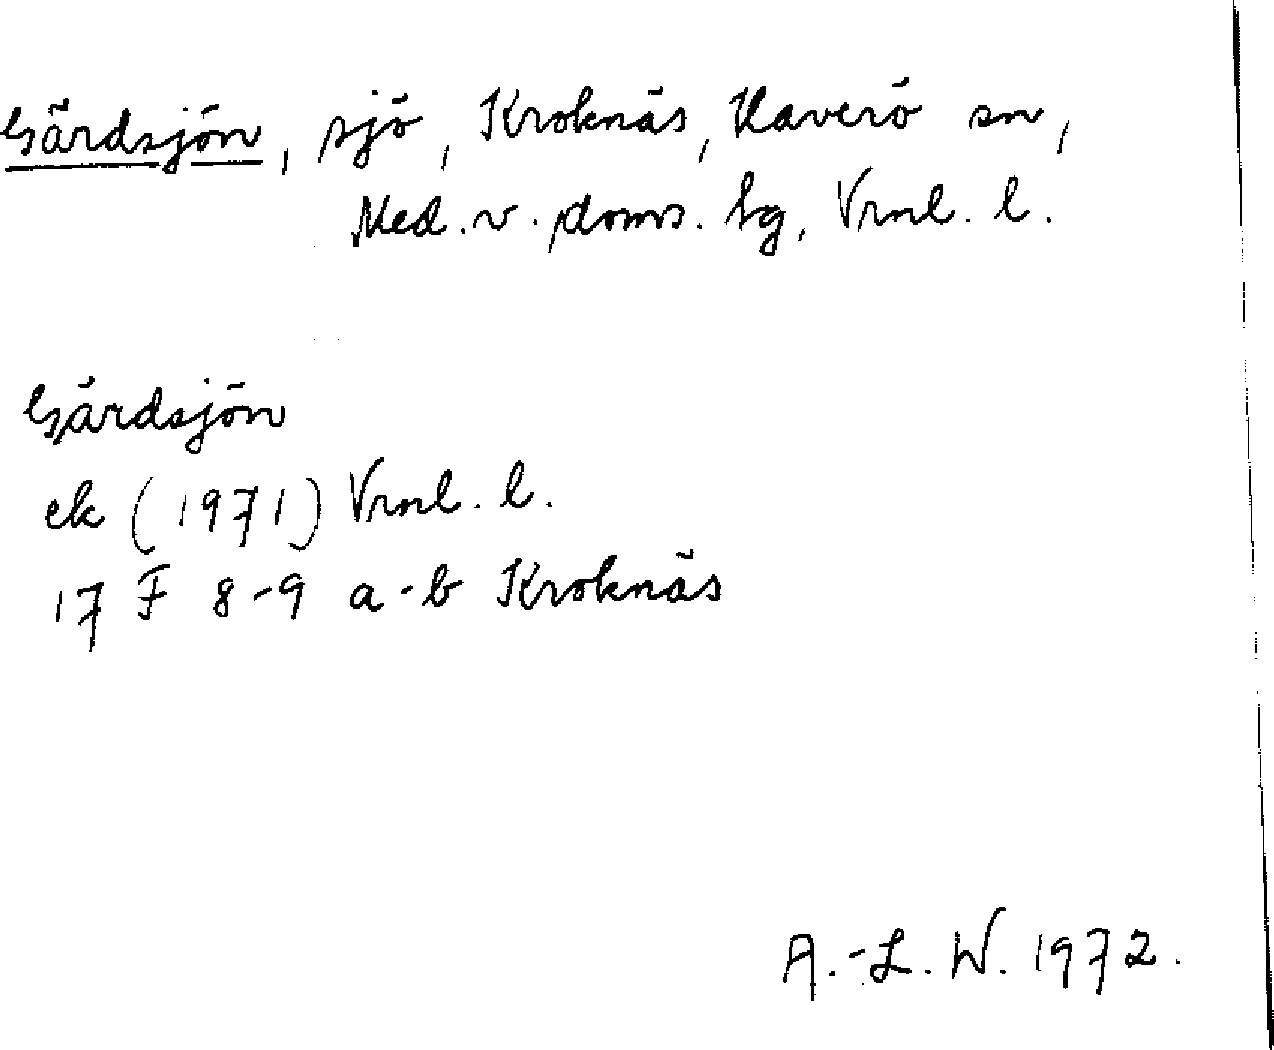 Gärdsjön, sjö, Kroknäs, Haverö sn,
Med. v. doms. tg, Vrnl. l.
Gärdsjön
ek (1971) Vrnl. l.
17 F 8-9 a-b Kroknäs
A.-L. W. 1972.